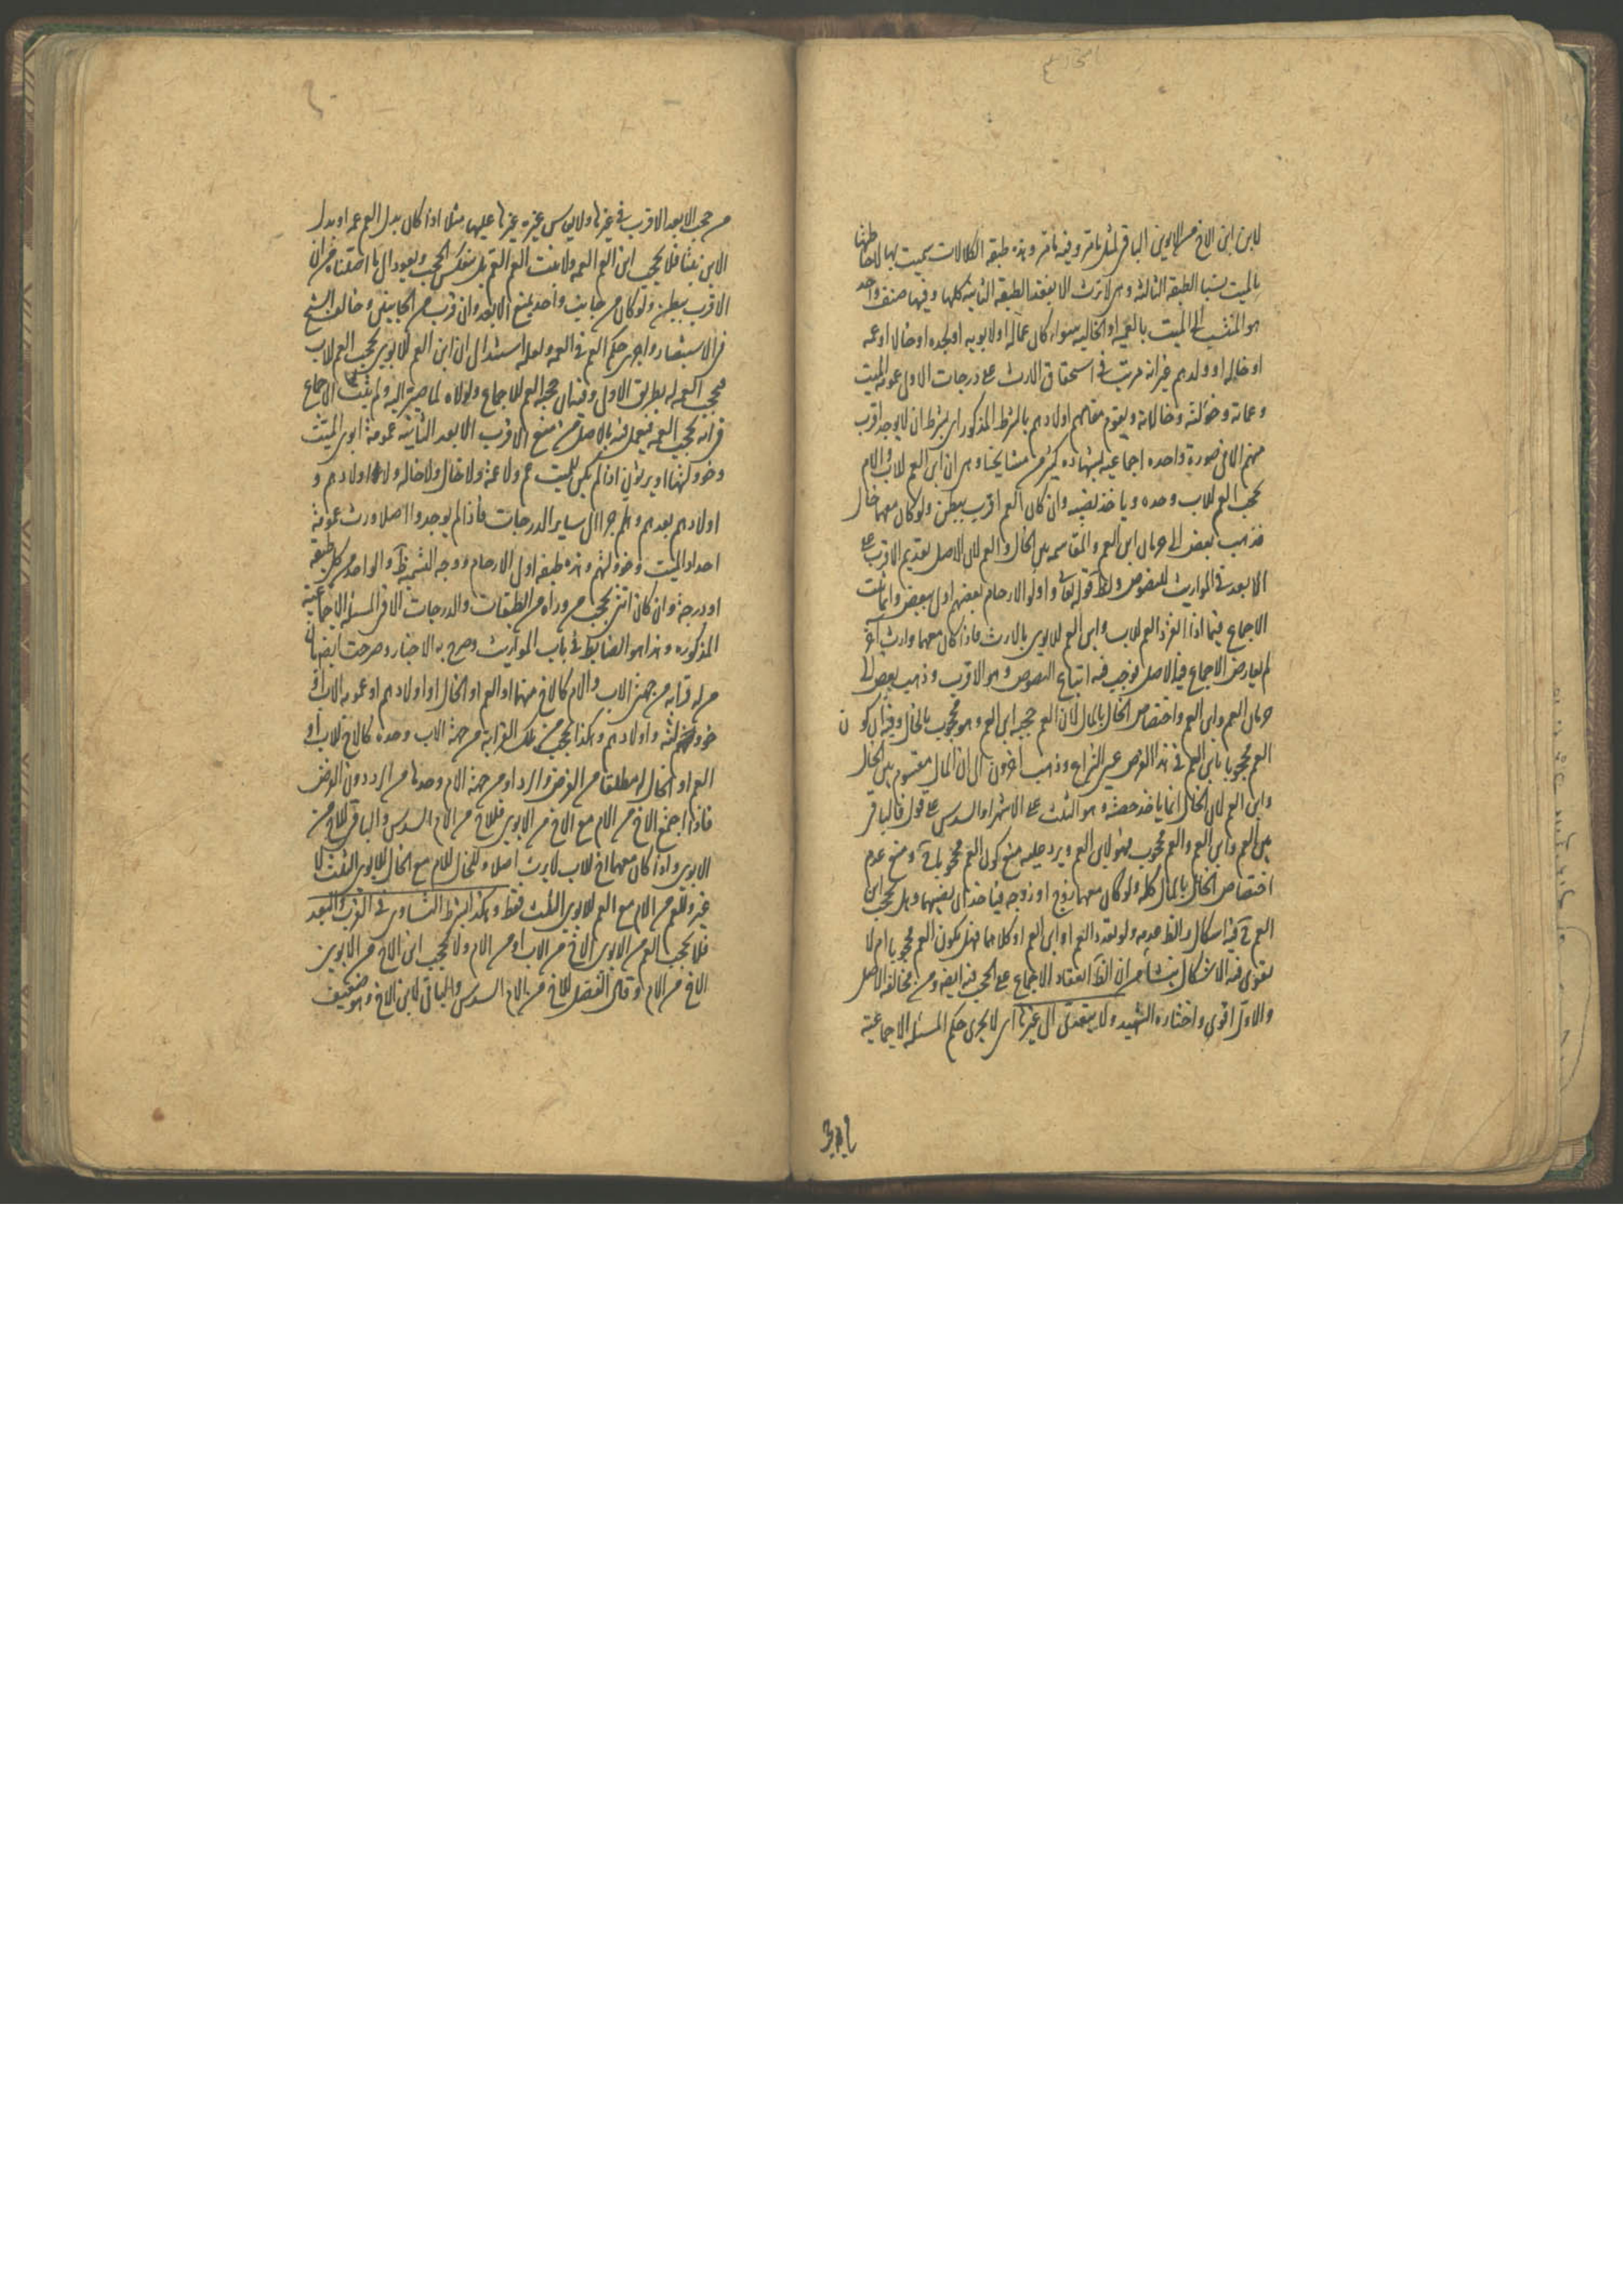 لابن ابن الاخ من الابوين الباقي لمثل ما مر وفيه ما مر وهذه طبقة الكلالات سميت بها لاحاطتها
بالميت نسبا الطبقة الثالثة وهي لا ترث الا بفقد الطبقة الثانية كلها وفيها صنف واحد
هو المنتسب الى الميت بالعمية او الخالية سواء كان عما له او لابويه او لجده او خال او عمه
او خاله او ولدهم غير انه مرتب في استحقاق الارث على درجات الاول عمومة الميت
وعماته وخولته وخالاته ويقوم مقامهم اولادهم بالشرط المذكور اي بشرط ان لا يوجد اقرب
منهم الا في صورة واحدة اجماعية بشهادة كثير من مشايخنا وهي ان ابن العم للاب والام
يحجب العم للاب وحده وياخذ نصيبه وان كان العم اقرب ببطن ولو كان معهما خال
فذهب بعض الى حرمان ابن العم والمقاسمة بين الخال والعم لان الاصل تقديم الاقرب على
الابعد في المواريث للنصوص ولظ قوله تعا واولوا الارحام بعضهم اولى ببعض وانما ثبت
الاجماع فيما اذا انفرد العم للاب وابن العم للابوين بالارث فاذا كان معهما وارث آخر
لم يعارض الاجماع فيه الاصل فوجب فيه اتباع النصوص وهو الاقرب وذهب بعض الى
حرمان العم وابن العم واختصاص الخال بالمال لان العم حجبه ابن العم وهو محجوب بالخال وفيه ان كون
العم محجوبا بابن العم في هذا الفرض عين النزاع وذهب آخرون الى ان المال مقسوم بين الخال
وابن العم لان الخال انما ياخذ حصته وهو الثلث على الاشهر او السدس على قول فالباقي
بين العم وابن العم والعم محجوب فهو لابن العم ويرد عليه منع كون العم محجوبا ح ومنع عدم
اختصاص الخال بالمال كله ولو كان معهما زوج او زوجة فياخذان نصيبهما وهل يحجب ابن
العم ح فيه اشكال والظ عدمه ولو تعدد العم او ابن العم او كلاهما فهل يكون العم محجوبا ام لا
يقوى فيه الاشكال ينشا من ان الظ انعقاد الاجماع على الحجب فيه ايضه ومن مخالفة الاصل
والاول اقوى واختاره الشهيد ولا يتعدى الى غيرها اي لا يجري حكم المسئلة الاجماعية
من حجب الابعد الاقرب في غيرها ولا يقاس غيرها عليها مثلا اذا كان بدل العم عمه او بدل
الابن بنتا فلا يحجب ابن العم العمة ولا بنت العم العم بل ينعكس الحجب ويعود الى ما اصلناه من ان
الاقرب ببطن ولو كان من جانب واحد يمنع الابعد وان قرب من الجانبين وخالف الشيخ
في الاستبصار واجرى حكم العم في العمة ولعله استدل ان ابن العم للابوين يحجب العم للاب
فيحجب العمة له بطريق الاولى وفيه ان حجبه العم للاجماع ولولاه لما صير اليه ولم يثبت الاجماع
في انه يحجب العمة فيعمل فيه بالاصل من منع الاقرب الابعد الثانية عمومة ابوي الميت
وخؤولتهما ويرثون اذا لم يكن للميت عم ولا عمة ولا خال ولا خالة ولا اولادهم و
اولادهم بعدهم وهلم جرا الى ساير الدرجات فاذا لم يوجدوا اصلا ورث عمومة
اجداد الميت وخؤولتهم وهذه طبقة اولي الارحام ووجه التسمية ظ والواحد من كل طبقة
او درجة وان كان انثى يحجب من وراه من الطبقات والدرجات الا في المسئلة الاجماعية
المذكورة وهذا هو الضابط في باب المواريث وصرح به الاخبار وصرحت ايضه بان
من له قرابة من جهتي الاب والام كالاخ منهما او العم او الخال او اولادهم او عمومة الاب او
خؤولته واولادهم وهكذا يحجب من تلك القرابة من جهة الاب وحده كالاخ للاب او
العم او الخال له مطلقا من الفرض والرد او من جهة الام وحدها من الرد دون الفرض
فاذا اجتمع الاخ من الام مع الاخ من الابوين فللاخ من الام السدس والباقي للاخ من
الابوين واذا كان معهما اخ للاب لا يرث اصلا وللخال للام مع الخال للابوين الثلث لا
غير وللعم من الام مع العم للابوين الثلث فقط وهكذا بشرط التساوي في القرب والبعد
فلا يحجب العم من الابوين الاخ من الاب او من الام ولا يحجب ابن الاخ من الابوين
الاخ من الام وقال الفضل للاخ من الام السدس والباقي لابن الاخ وهو ضعيف